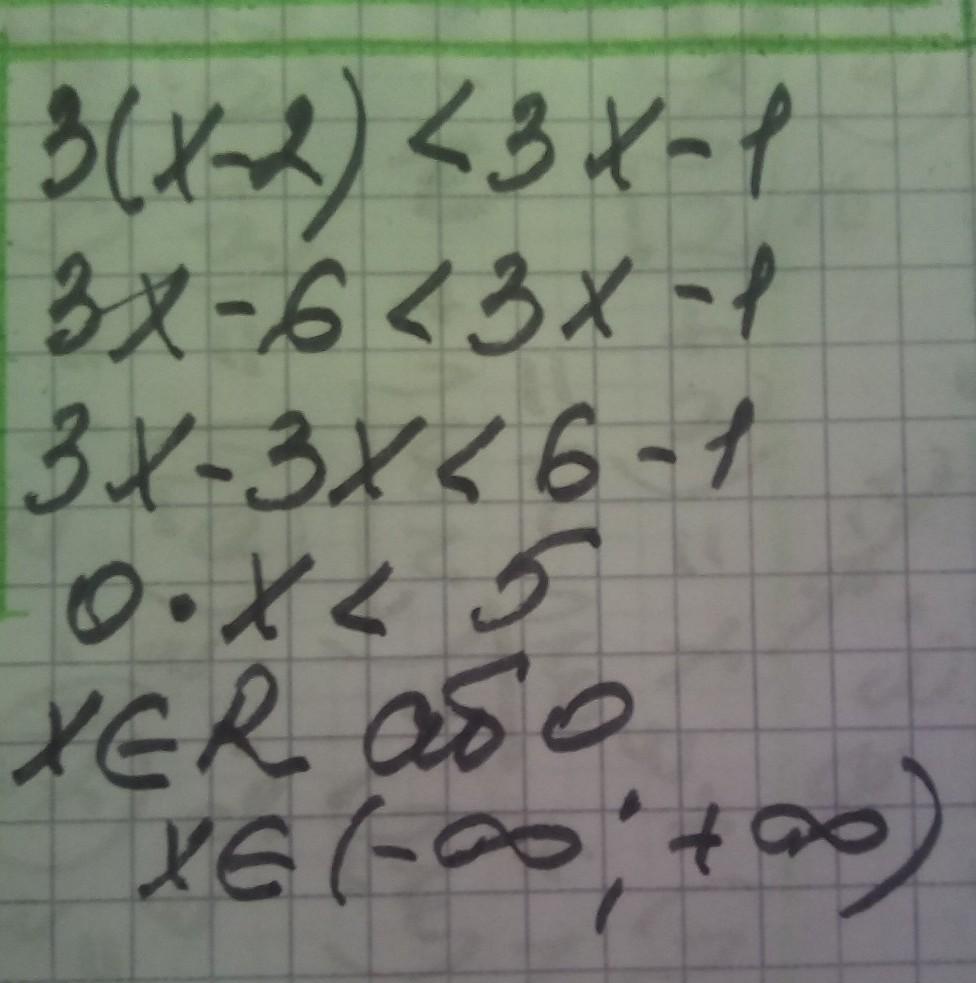 3(x-2) < 3x-1
3x-6 < 3x-1
3x-3x < 6-1
0·x < 5
x∈R або
x∈(-∞;+∞)